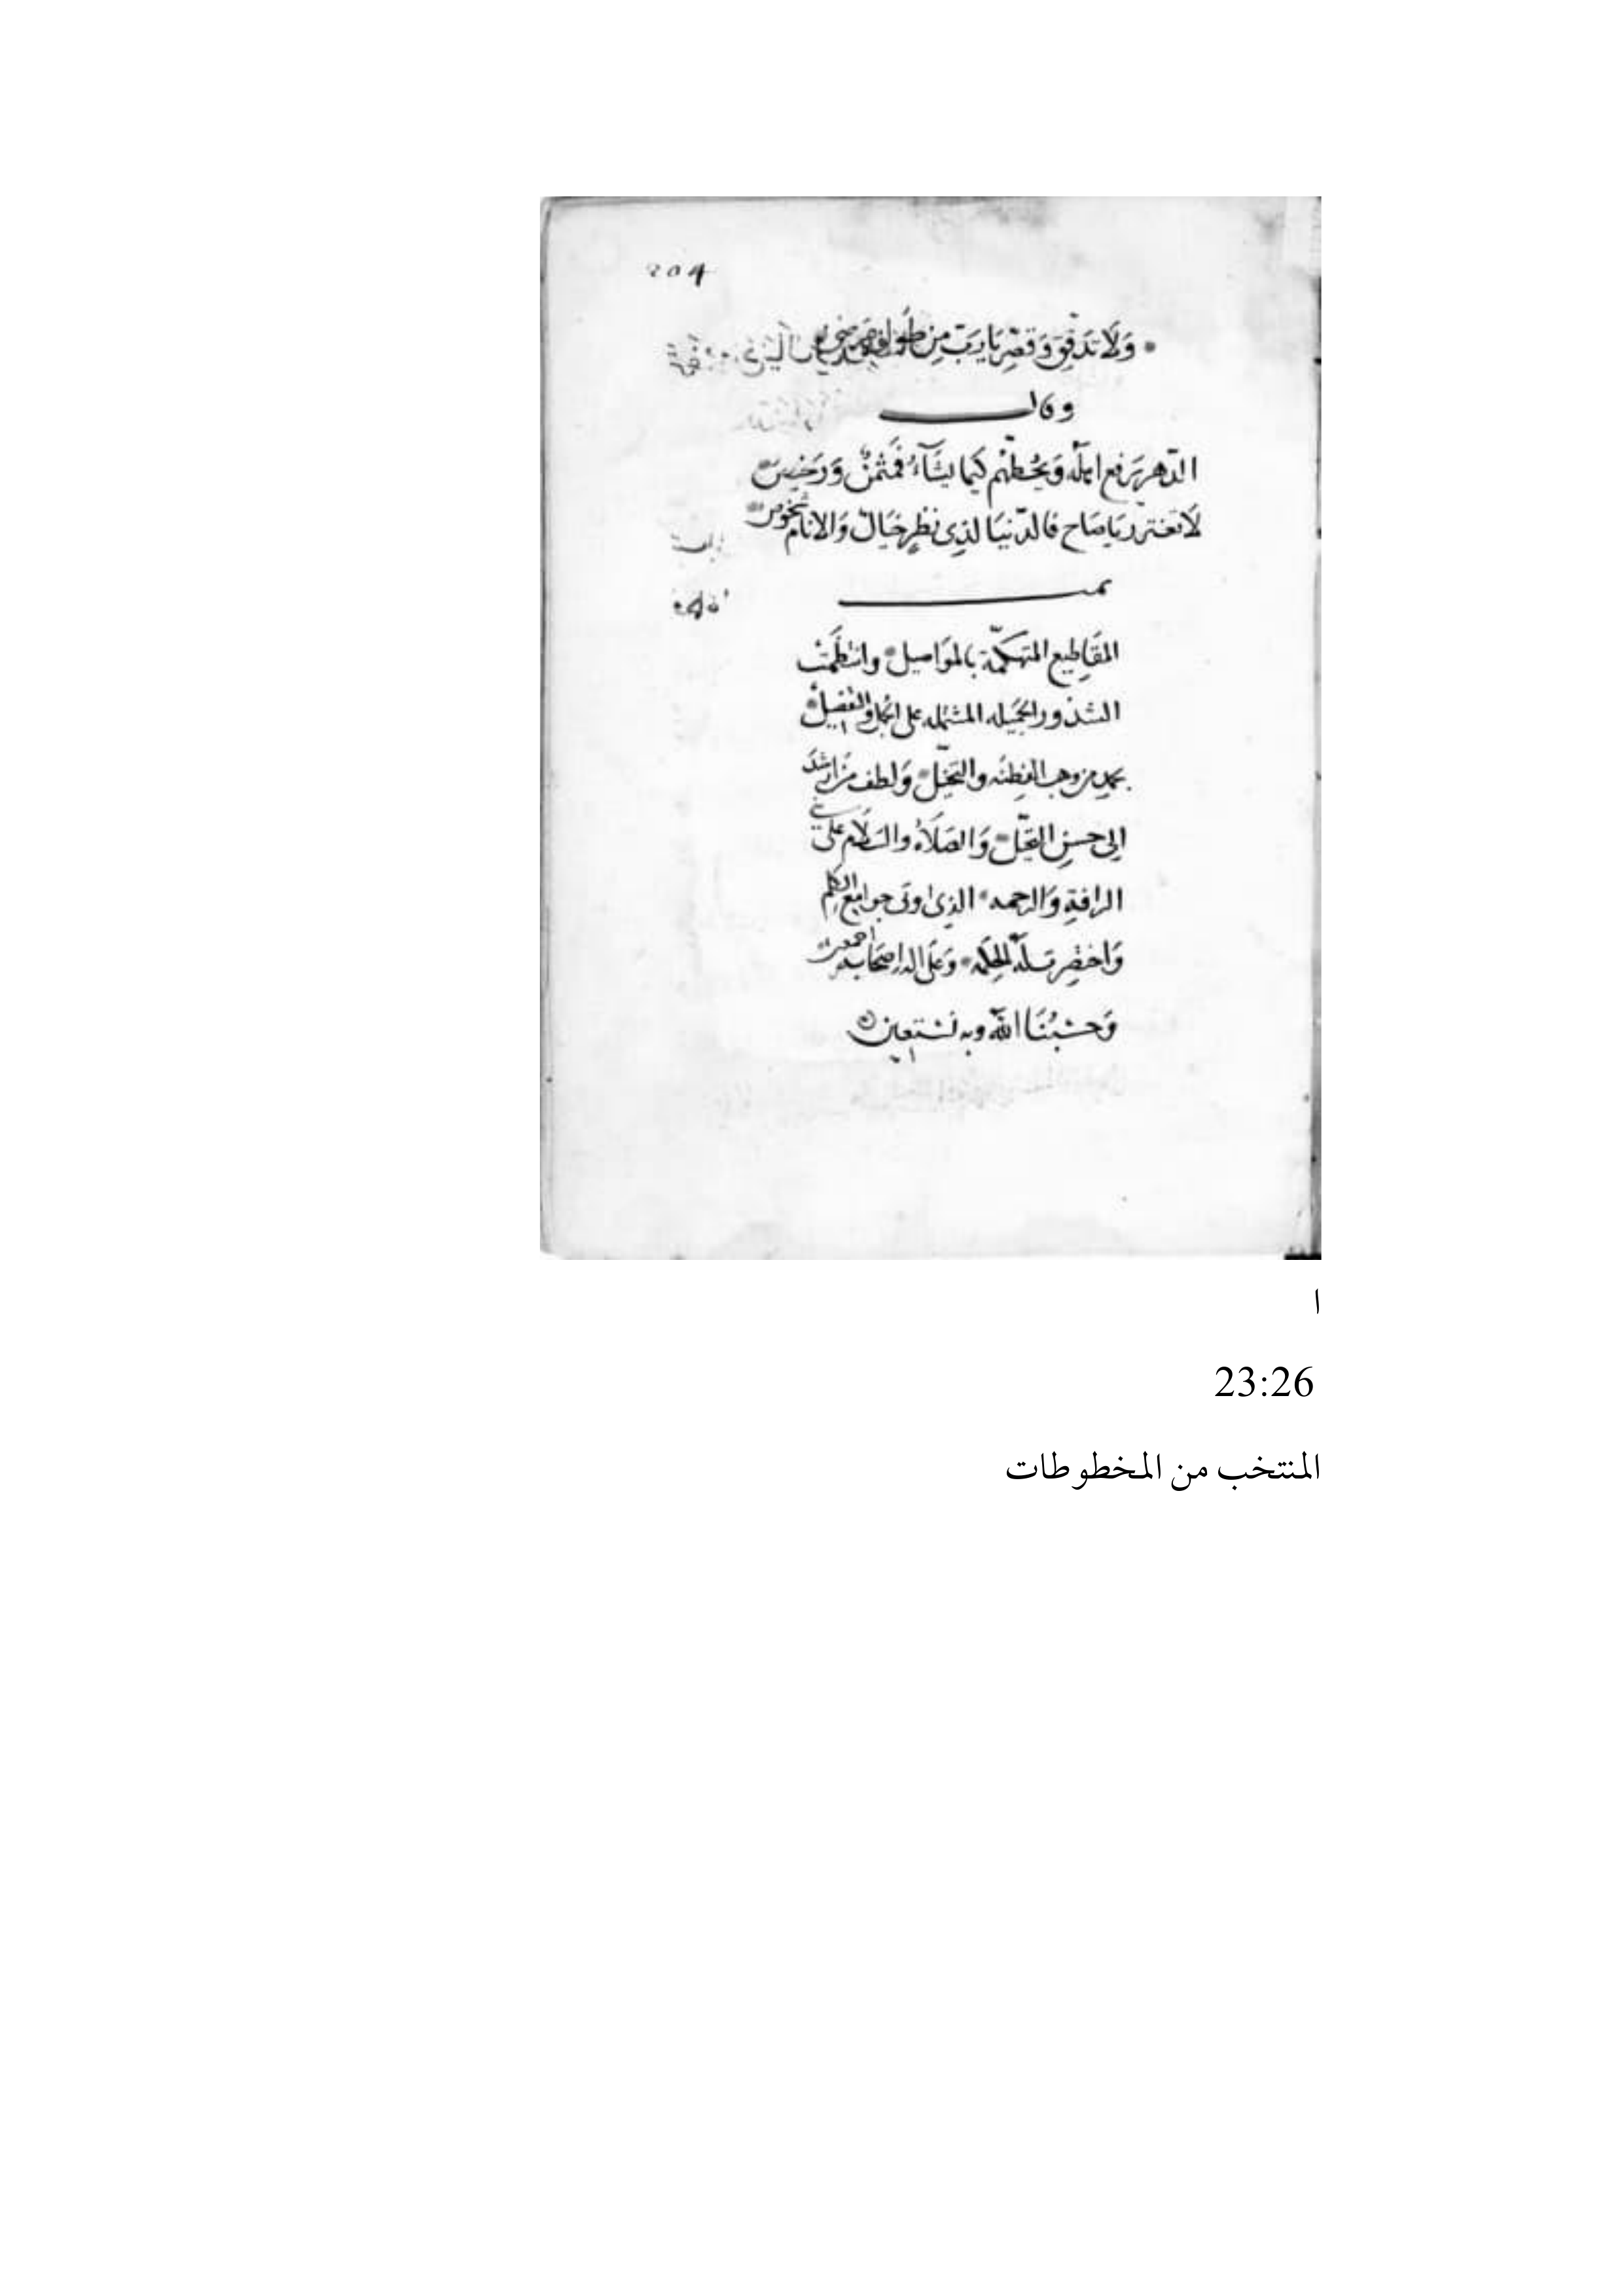 204
وَلَا تدَقِّق وَقصِّر يَا رَبّ مِن طَول
وقال
الدّهر يَرفع اهله وَيحُطّهُم كَيما يشَآءُ فمُثمنٌ وَرَخيصٌ
لَا تغترر يَا صَاح فالدّنيَا لذِى نظرٍ خيَالٌ وَالانام شخوص
تمت
المقَاطِيع المتهكمّة بالموَاصيل وانتظَمَتْ
الشذور الجَميله المشتمله على الجمل والتفصيل
بحمدِ من وهب الفِطنَه والتخيّل وَلطف من ارشدَ
الى حسنِ التحيّل وَالصَلَاةُ والسَلَام على نبي
الرافةِ وَالرحمه الذِى اوتى جوامِعَ الكلم
وَعَلى اله واصحَابه اجمعين
وَحَسْبُنَا اللّه وبه نَستعين
ا
23:26
المنتخب من المخطوطات